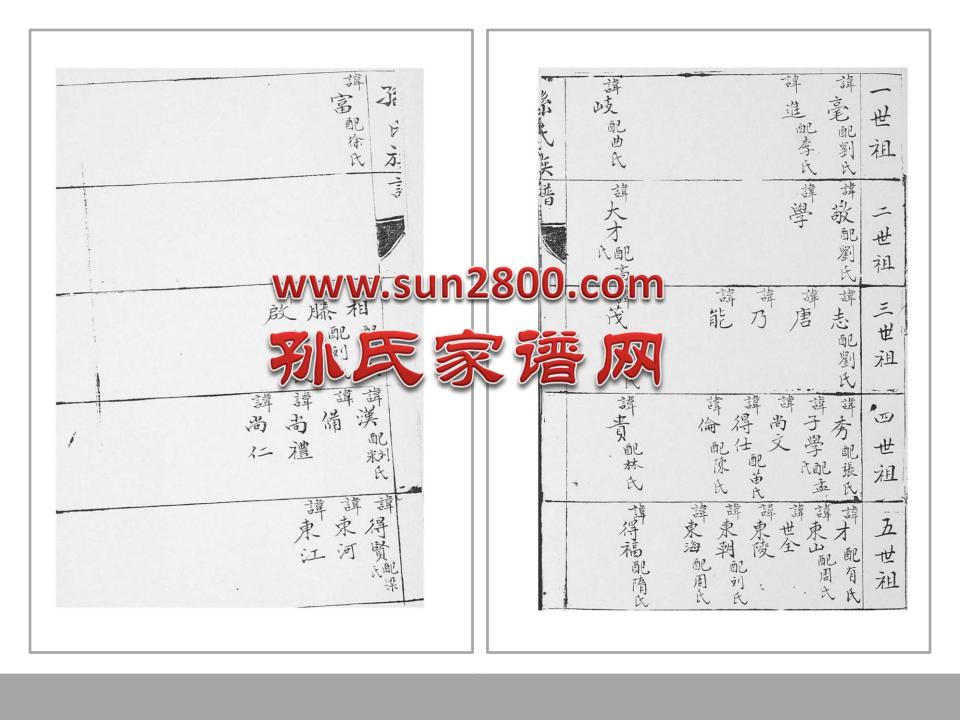 一世祖
諱亳配劉氏
諱進配李氏
諱岐配曲氏
二世祖
諱敬配劉氏
諱學
諱大才配高氏
三世祖
諱志配劉氏
諱唐
諱乃
諱能
諱茂
氏
四世祖
諱秀配張氏
諱子學配孟氏
諱尚文
諱得仕配苗氏
諱倫配陳氏
諱貴配林氏
五世祖
諱才配有氏
諱東山配周氏
諱世全
諱東陵
諱東朝配刘氏
諱東海配周氏
諱得福配隋氏
孫氏族譜
孫氏族
諱富配徐氏
相
滕配刘
啟
諱漢配刘氏
諱備
諱尚禮
諱尚仁
諱得賢配梁氏
諱東河
諱東江
www.sun2800.com
孙氏家谱网